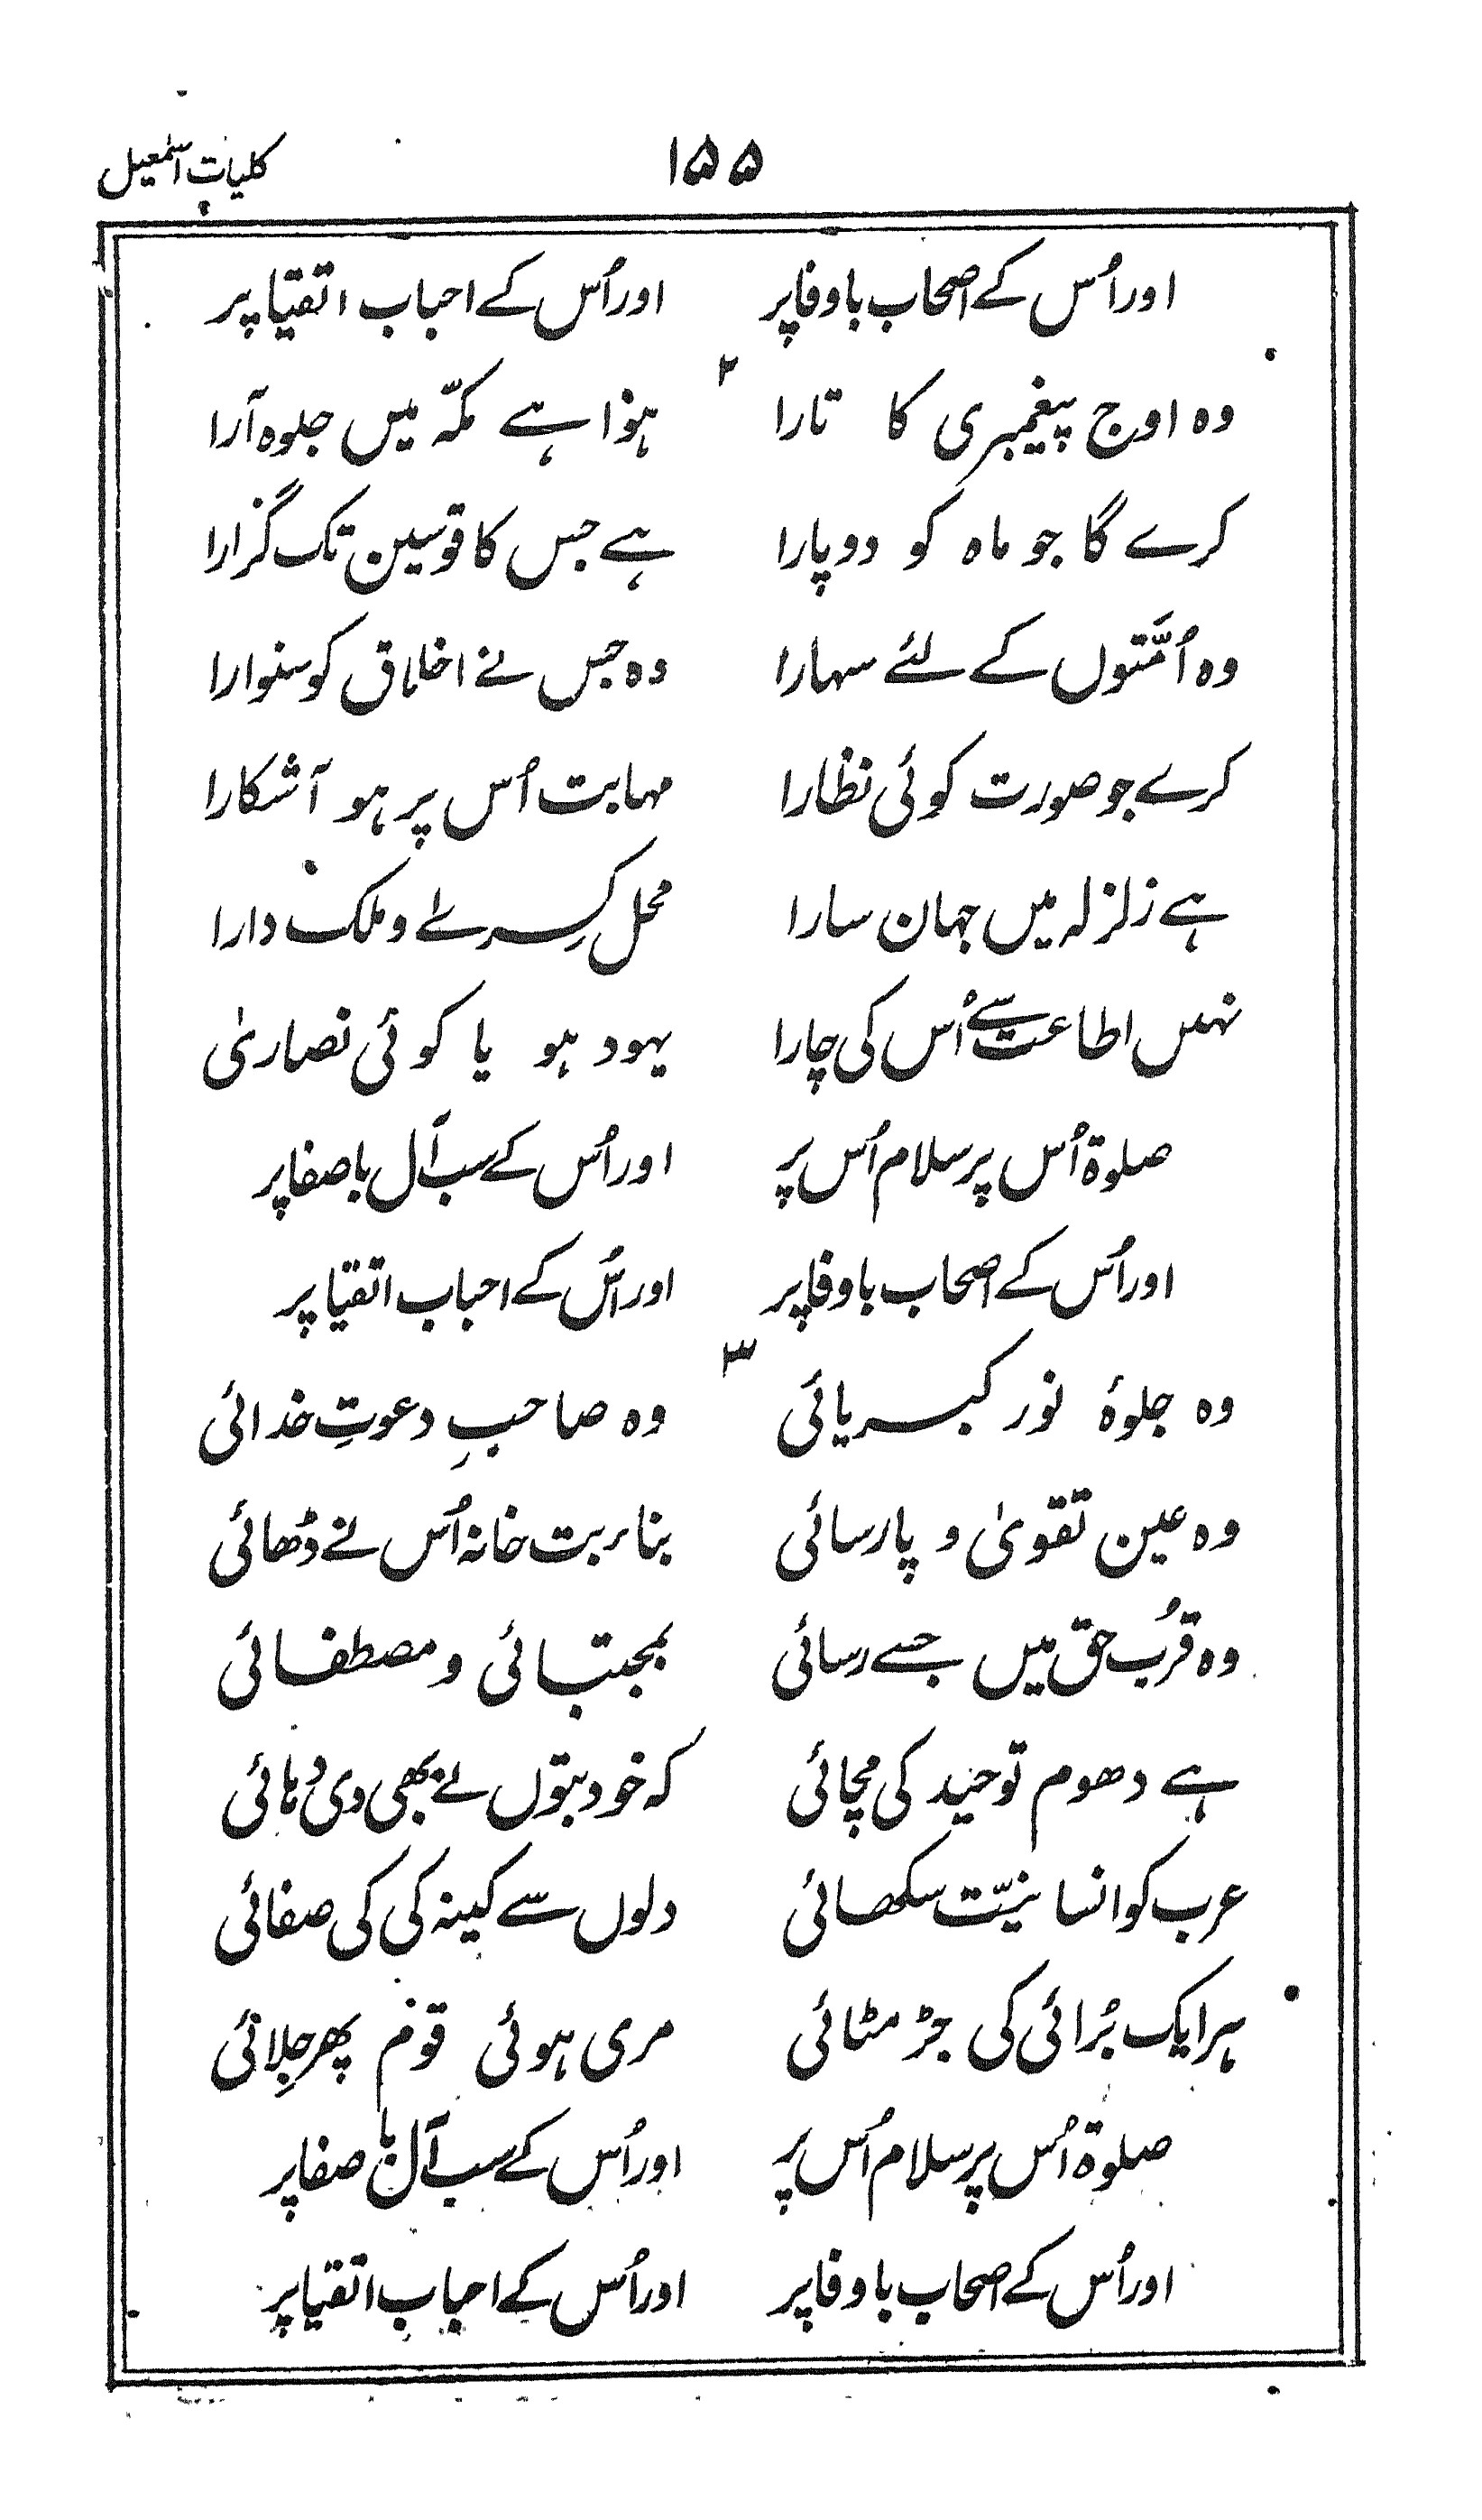 کلیات اسمٰعیل ۱۵۵
اور اُس کے اصحاب باوفا پر اور اُس کے احباب اتقیا پر
۲
وہ اوج پیغمبری کا تارا ہوا ہے مکّہ میں جلوہ آرا
کرے گا جو ماہ کو دوپارا ہے جس کا قوسین تک گزارا
وہ اُمّتوں کے لئے سہارا وہ جس نے اخلاق کو سنوارا
کرے جو صورت کوئی نظارا مہابت اُس پر ہو آشکارا
ہے زلزلہ میں جہان سارا محل کِسرےٰ و ملک دارا
نہیں اطاعت سے اُس کی چارا یہود ہو یا کوئی نصاریٰ
صلوۃ اُس پر سلام اُس پر اور اُس کے سب آل باصفا پر
اور اُس کے اصحاب باوفا پر اور اُس کے احباب اتقیا پر
۳
وہ جلوۂ نور کبریائی وہ صاحبِ دعوتِ خدائی
وہ عین تقویٰ و پارسائی بناء بت خانہ اُس نے ڈھائی
وہ قُرب حق میں جسے رسائی بمجتبائی و مصطفائی
ہے دھوم توحید کی مچائی کہ خود بتوں نے بھی دی دُہائی
عرب کو انسانیّت سکھائی دلوں سے کینہ کی کی صفائی
ہر ایک بُرائی کی جڑ مٹائی مری ہوئی قوم پھر جِلائی
صلوۃ اُس پر سلام اُس پر اور اُس کے سب آل با صفا پر
اور اُس کے اصحاب باوفا پر اور اُس کے احباب اتقیا پر